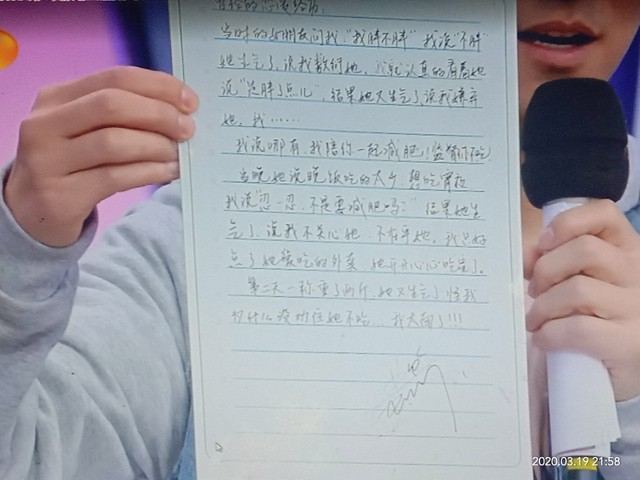 当时的女朋友问我,“我胖不胖”我说“不胖”
她生气了,说我敷衍她,我就认真的看着她
说“是胖了点儿”,结果她又生气了说我嫌弃
她,我……
我说哪有,我陪你一起减肥!监督你吃
当晚她说晚饭吃的太少,想吃宵夜
我说“忍一忍,不是要减肥吗?”结果她生
气了,说我不关心她,不在乎她,我只好
点了她爱吃的外卖,她开开心心吃完了。
第二天一称重了两斤,她又生气了怪我
为什么没劝住她不吃…我太难了!!!
2020.03.19 21:58